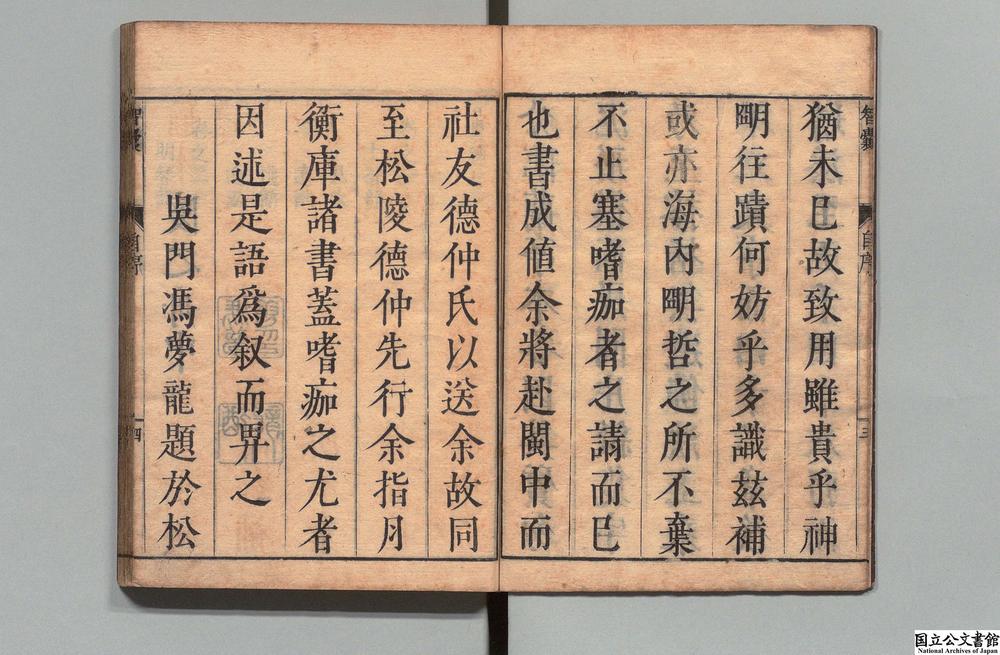 猶未已故致用雖貴乎神
明往蹟何妨乎多識茲補
或亦海內明哲之所不棄
不止塞嗜痂者之請而已
也書成値余將赴閩中而
社友德仲氏以送余故同
至松陵德仲先行余指月
衡庫諸書蓋嗜痂之尤者
因述是語爲叙而畀之
吳門馮夢龍題於松
智囊
自序
三
智囊
自序
四
国立公文書館
National Archives of Japan